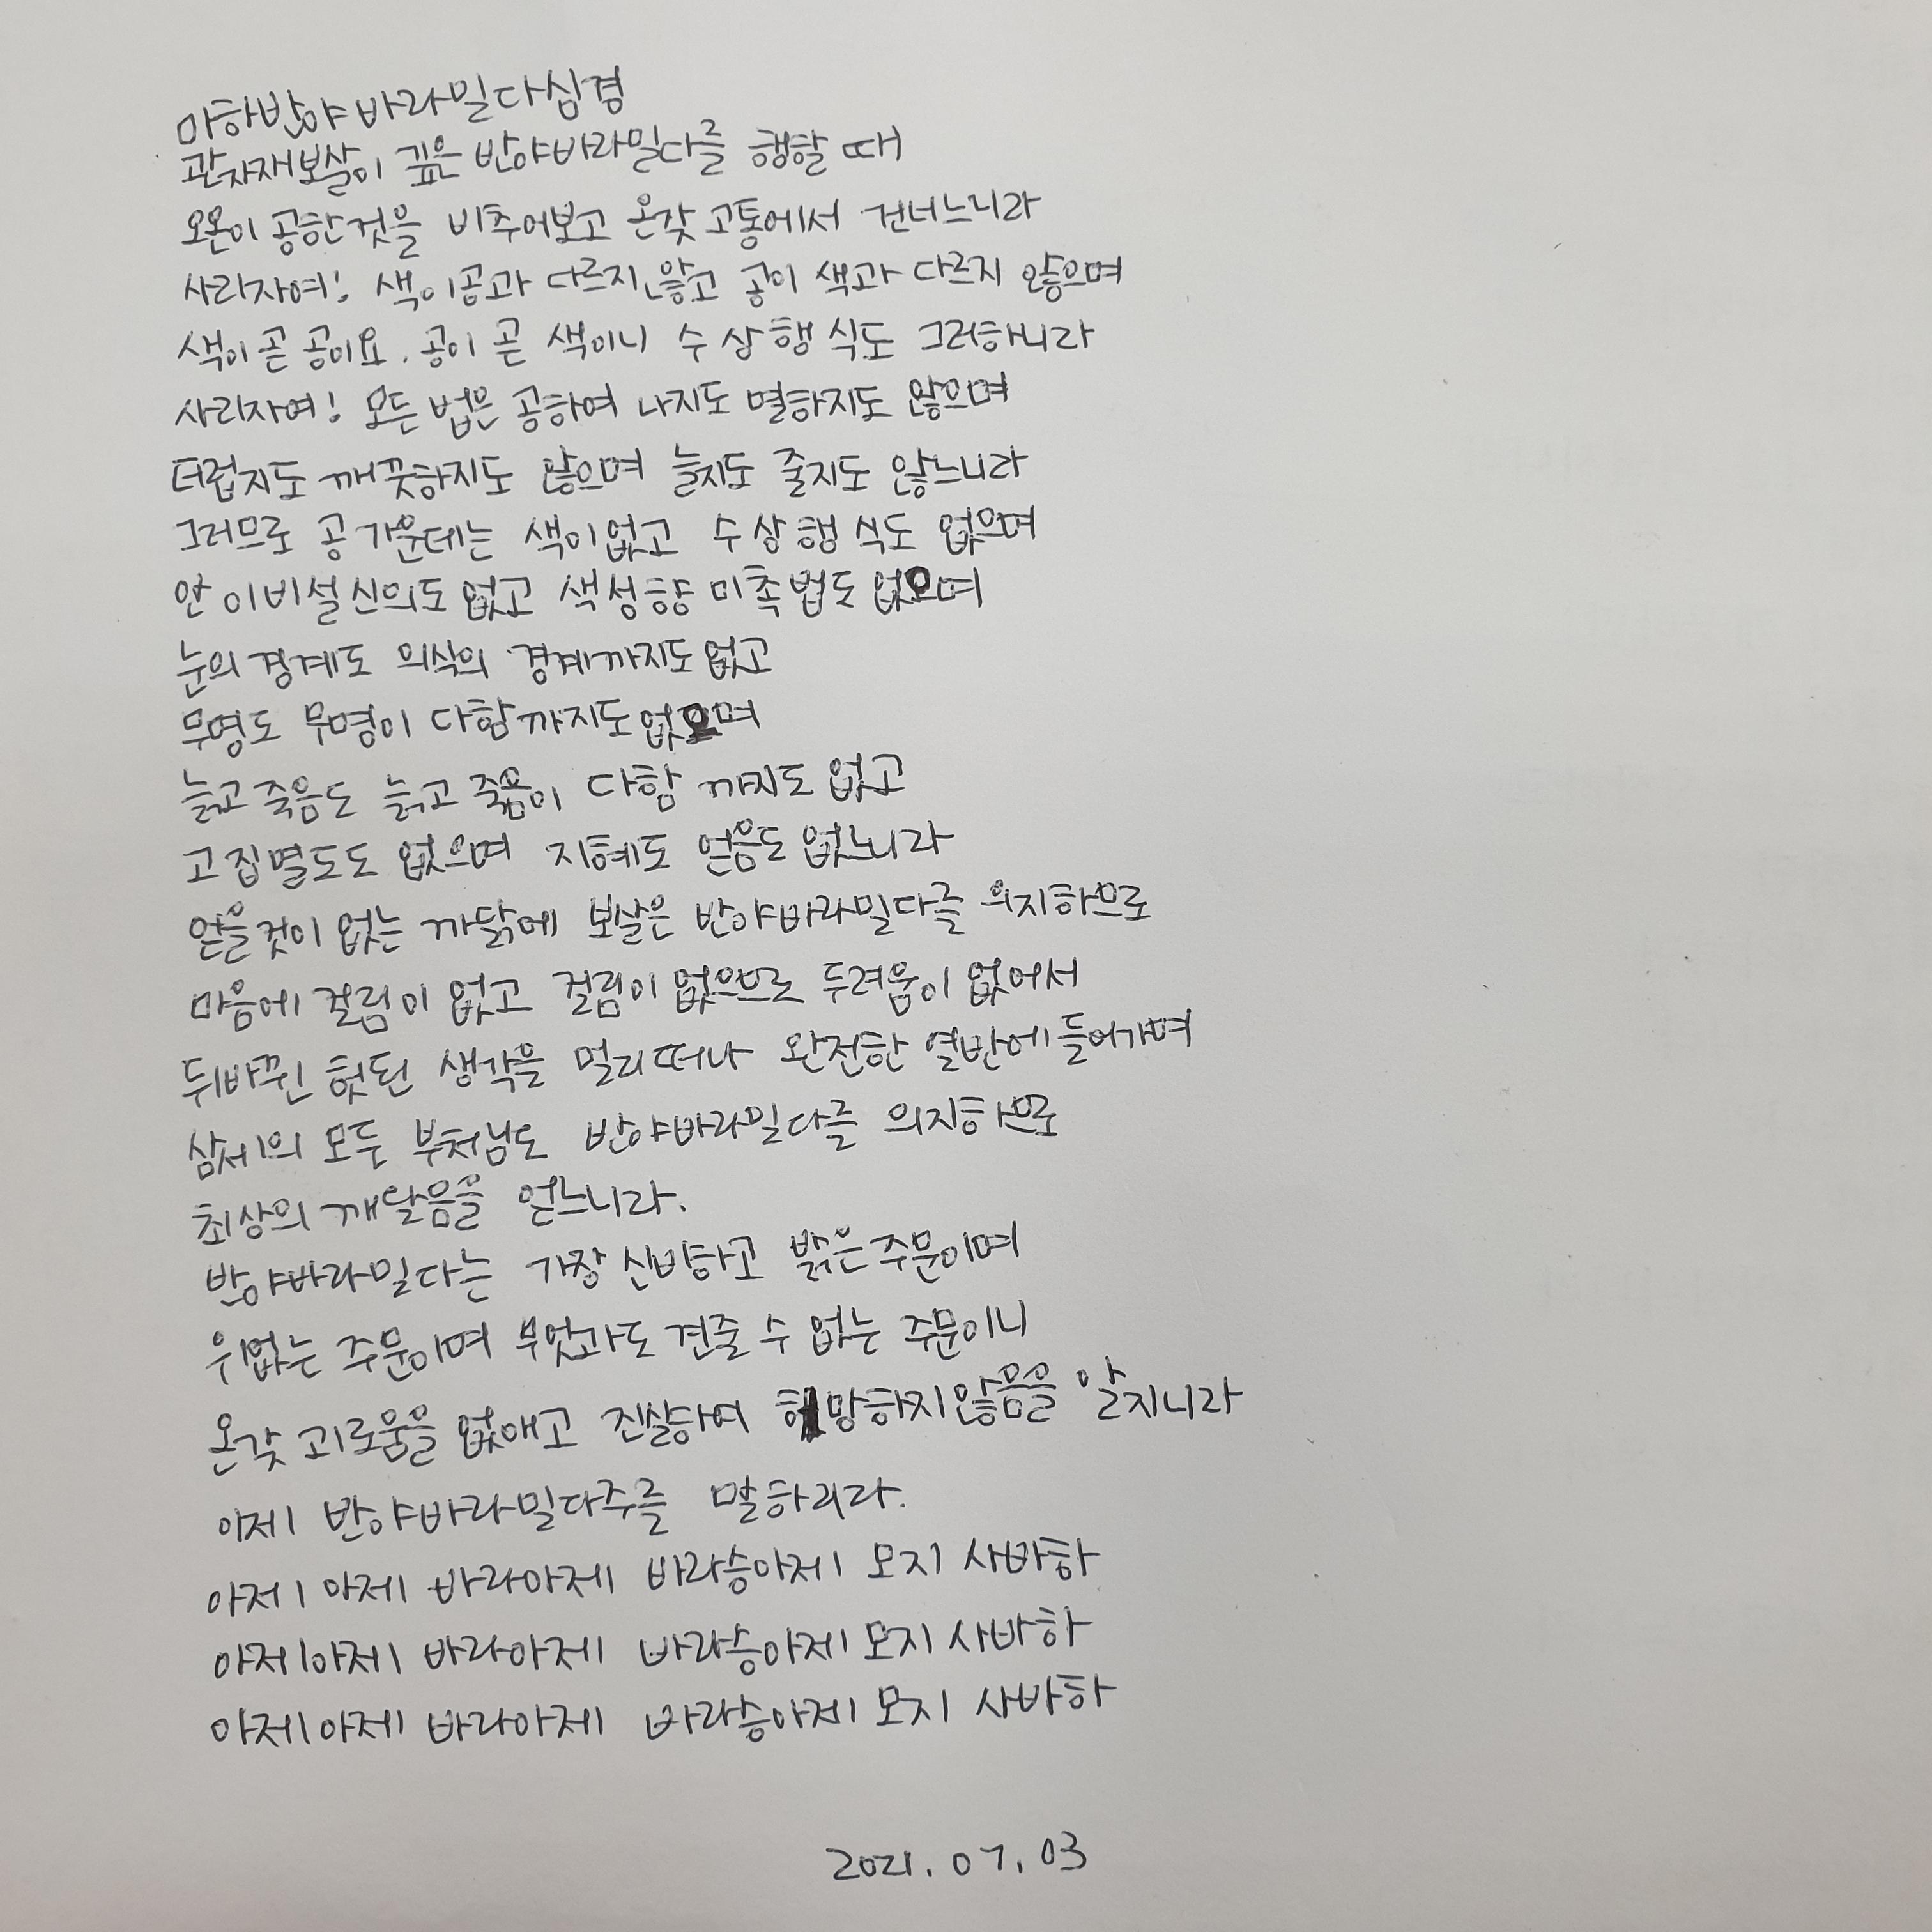 마하반야바라밀다심경
관자재보살이 깊은 반야바라밀다를 행할 때
오온이 공한것을 비추어보고 온갖 고통에서 건너느니라
사리자여! 색이공과 다르지 않고 공이 색과 다르지 않으며
색이 곧 공이요. 공이 곧 색이니 수 상 행 식도 그러하니라
사리자여! 모든 법은 공하여 나지도 멸하지도 않으며
더럽지도 깨끗하지도 않으며 늘지도 줄지도 않느니라
그러므로 공 가운데는 색이없고 수 상 행 식도 없으며
안 이비설신의도 없고 색성향 미촉법도 없으며
눈의 경계도 의식의 경계까지도 없고
무명도 무명이 다함까지도 없으며
늙고 죽음도 늙고 죽음이 다함 까지도 없고
고집멸도도 없으며 지혜도 얻음도 없느니라
얻을것이 없는 까닭에 보살은 반야바라밀다를 의지하므로
마음에 걸림이 없고 걸림이 없으므로 두려움이 없어서
뒤바뀐 헛된 생각을 멀리떠나 완전한 열반에 들어가며
삼세의 모두 부처님도 반야바라밀다를 의지하므로
최상의 깨달음을 얻느니라.
반야바라밀다는 가장 신비하고 밝은 주문이며
위없는 주문이며 무엇과도 견줄 수 없는 주문이니
온갖 괴로움을 없애고 진실하여 허망하지않음을 알지니라
이제 반야바라밀다주를 말하리라.
아제 아제 바라아제 바라승아제 모지 사바하
아제아제 바라아제 바라승아제 모지 사바하
아제아제 바라아제 바라승아제 모지 사바하
2021. 07. 03